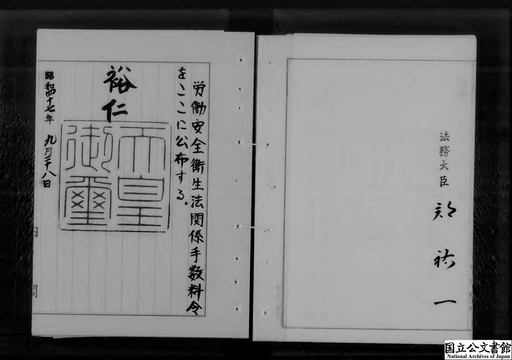 法務大臣 郡 祐一
労働安全衛生法関係手数料令
をここに公布する。
裕仁
天皇
御璽
昭和四十七年 九月二十八日
国立公文書館
National Archives of Japan